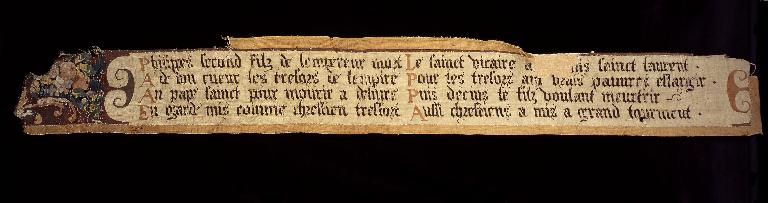 Philippes second filz de lempereur mort
A de son cueur les tresors de lempire
Au pape sainct pour mourir a delivre
En garde mis comme chrestien tresfort
Le sainct vicaire a mis sainct laurent .
Pour les tresors aux vrais pauvres eslargir .
Puis decius le filz voulant meurtrir
Aussi chrestiens a mis a grand tourment .